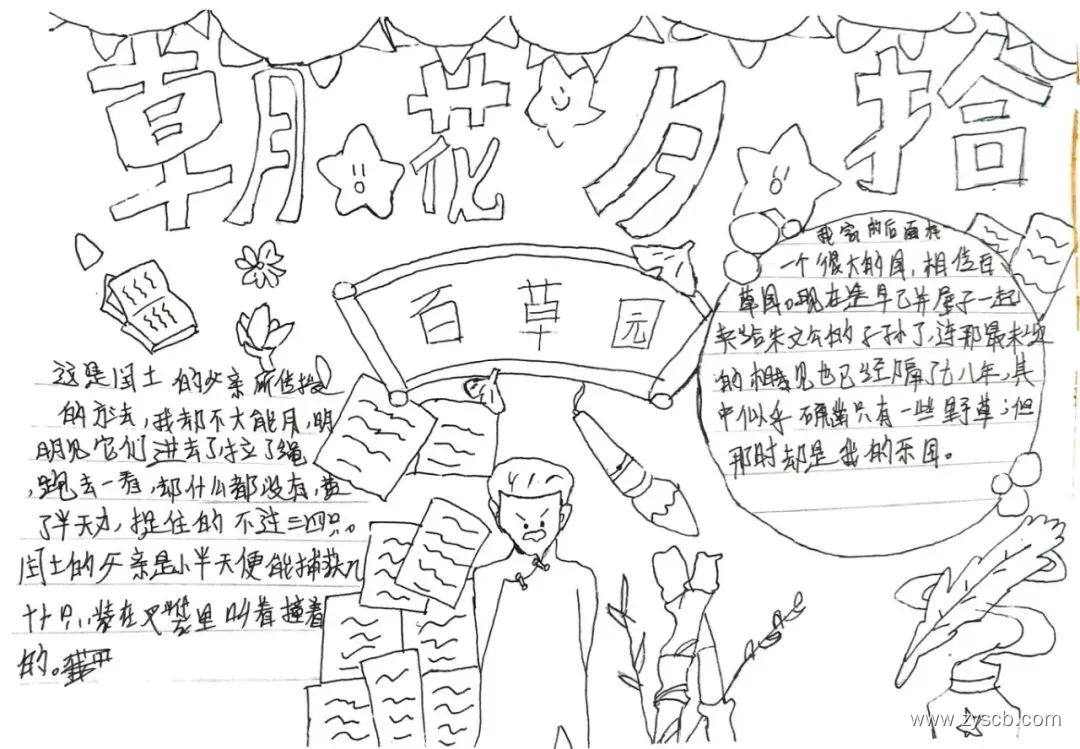 朝花夕拾
百草园
我家的后面有
一个很大的园，相传百
草园。现在是早已并屋子一起
卖给朱文公的子孙了，连那最末次
的相见也已经隔了七八年，其
中似乎确凿只有一些野草；但
那时却是我的乐园。
这是闰土的父亲所传授
的方法，我却不大能用，明
明见它们进去了，拉了绳
，跑去一看，却什么都没有，费
了半天力，捉住的不过三四只。
闰土的父亲是小半天便能捕获几
十只，装在叉袋里叫着撞着
的。
www.zyscb.com